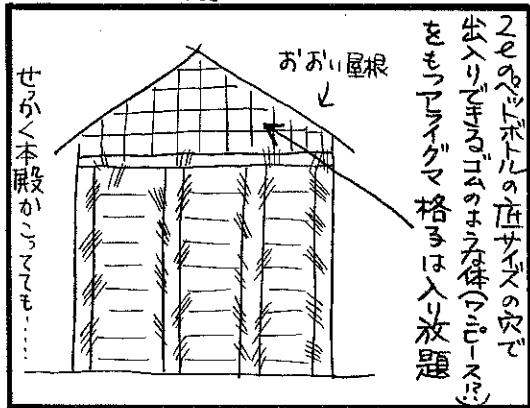 2ℓのペットボトルの底サイズの穴で
出入りできるゴムのような体(ワンピース!?)
をもつアライグマ格子は入り放題
おおい屋根
せっかく本殿がこってても……